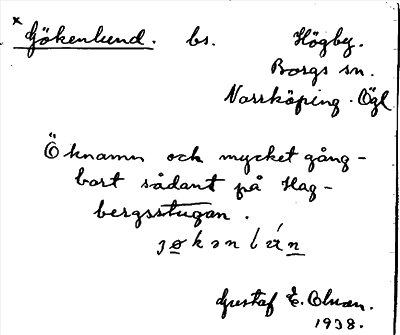 × Gökenlund. bs. Högby.
Borgs sn.
Norrköping. Ögl
Öknamn och mycket gång-
bart sådant på Hag-
bergsstugan.
Gustaf E. Olsson.
1938.